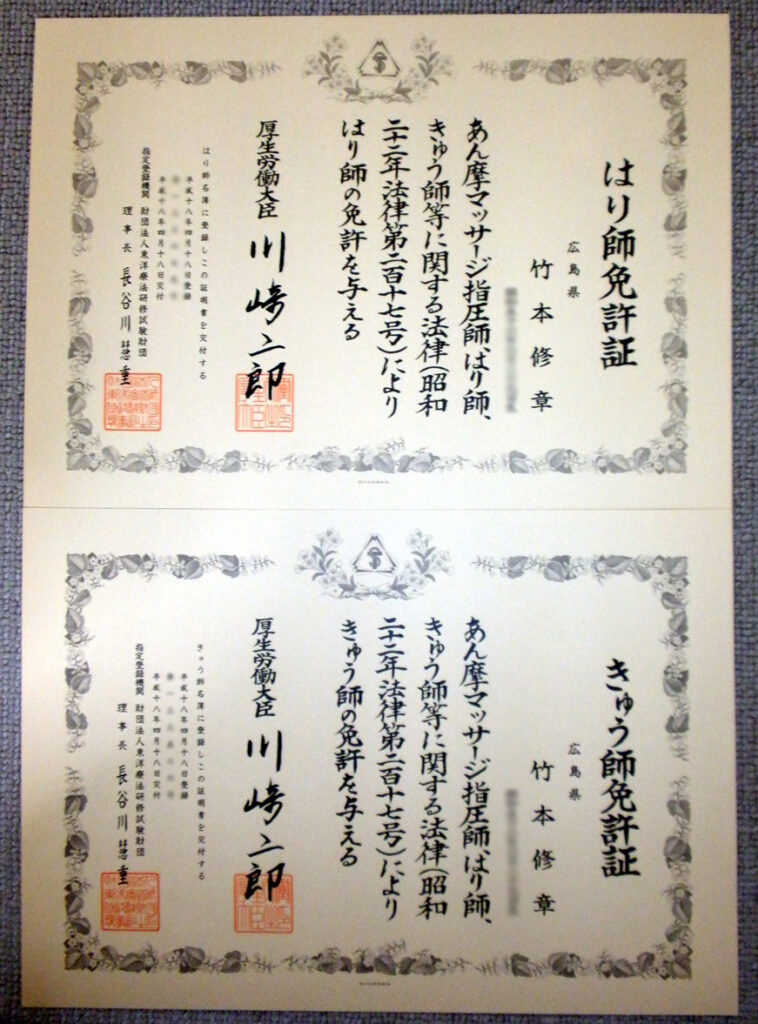 はり師免許証
広島県
竹本修章
あん摩マッサージ指圧師、はり師、
きゅう師等に関する法律(昭和
二十二年法律第二百十七号)により
はり師の免許を与える
厚生労働大臣 川崎二郎
はり師名簿に登録しこの証明書を交付する
平成十八年四月十八日登録
平成十八年四月十八日交付
指定登録機関 財団法人東洋療法研修試験財団
理事長 長谷川慧重
きゅう師免許証
広島県
竹本修章
あん摩マッサージ指圧師、はり師、
きゅう師等に関する法律(昭和
二十二年法律第二百十七号)により
きゅう師の免許を与える
厚生労働大臣 川崎二郎
きゅう師名簿に登録しこの証明書を交付する
平成十八年四月十八日登録
平成十八年四月十八日交付
指定登録機関 財団法人東洋療法研修試験財団
理事長 長谷川慧重